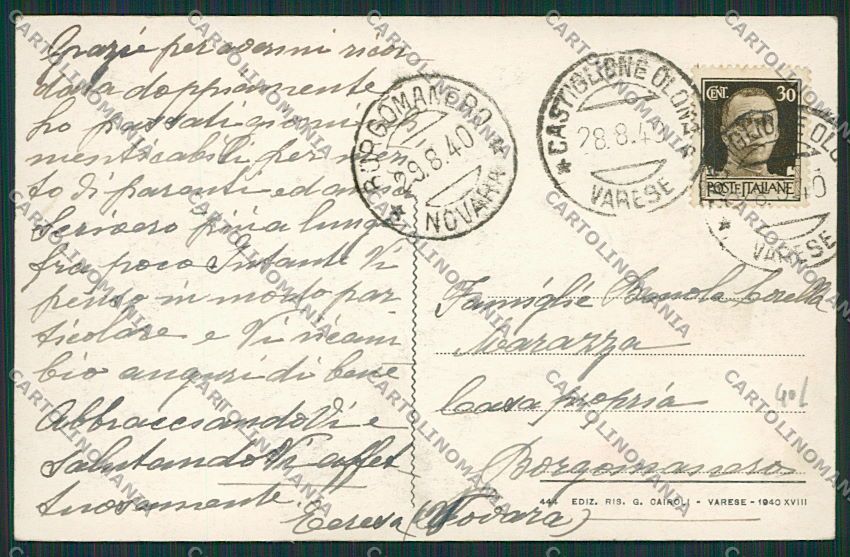 Grazie per avermi ricor
data doppiamente
ho passati giorni
menticabili per
to di parenti ed
Scriverò più a lungo
fra poco. Intanto Vi
penso in modo par
ticolare e Vi ricam
bio auguri di bene
Abbracciandovi e
salutandoVi affet
tuosamente.
Teresa
BORGOMANERO
29.8.40
NOVARA
CASTIGLIONE OLONA
28.8.40
VARESE
CENT. 30
POSTE ITALIANE
VARESE
Famiglie
Marazza
Casa propria
Borgomanero
(Novara)
40L
444 EDIZ. RIS. G. CAIROLI - VARESE - 1940 XVIII
CARTOLINOMANIA